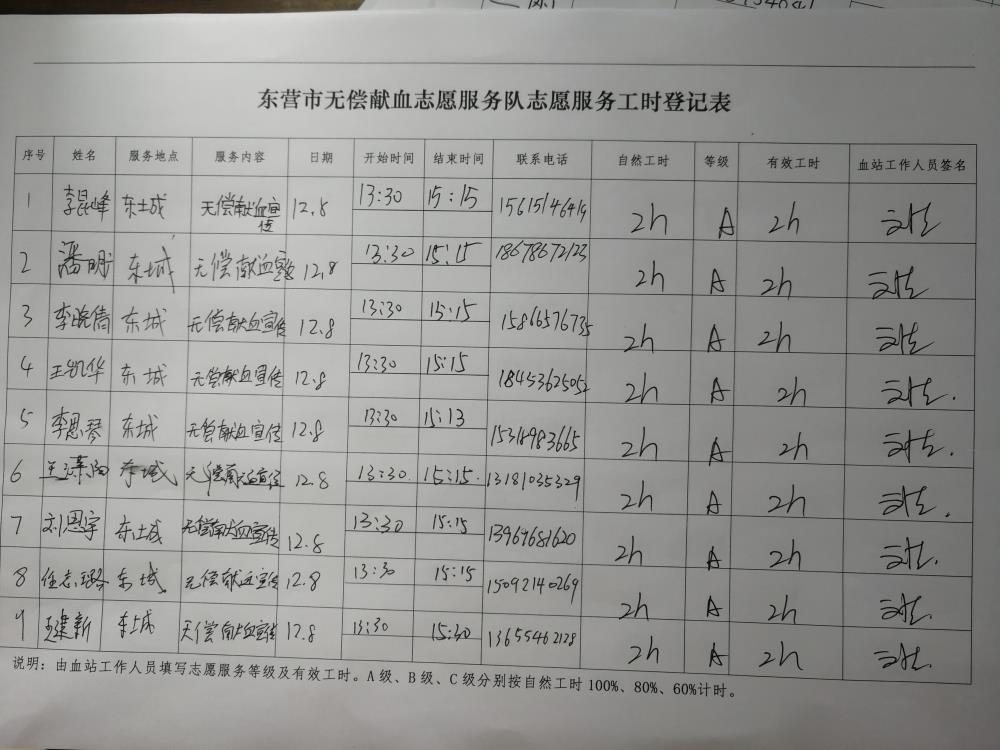 东营市无偿献血志愿服务队志愿服务工时登记表
序号 姓名 服务地点 服务内容 日期 开始时间 结束时间 联系电话 自然工时 等级 有效工时 血站工作人员签名
1 李昆峰 东城 无偿献血宣传 12.8 13:30 15:15 15615146419 2h A 2h
2 潘明 东城 无偿献血宣传 12.8 13:30 15:15 18678672123 2h A 2h
3 李晓倩 东城 无偿献血宣传 12.8 13:30 15:15 15866576735 2h A 2h
4 王凯华 东城 无偿献血宣传 12.8 13:30 15:15 18453625052 2h A 2h
5 李思琴 东城 无偿献血宣传 12.8 13:30 15:13 15314983665 2h A 2h
6 东城 无偿献血宣传 12.8 13:30 15:15 13181035329 2h A 2h
7 刘恩宇 东城 无偿献血宣传 12.8 13:30 15:15 13964681620 2h A 2h
8 任志璐 东城 无偿献血宣传 12.8 13:30 15:15 15092140269 2h A 2h
9 王建新 东城 无偿献血宣传 12.8 13:30 15:30 13655462128 2h A 2h
说明：由血站工作人员填写志愿服务等级及有效工时。A级、B级、C级分别按自然工时100%、80%、60%计时。